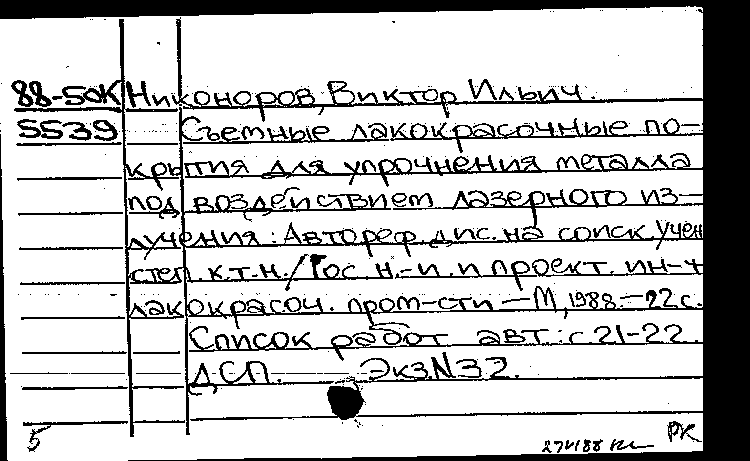 88-50К Никоноров, Виктор Ильич.
5539 Съемные лакокрасочные по-
крытия для упрочнения металла
под воздействием лазерного из-
лучения: Автореф. дис. на соиск. учен
степ. к.т.н./Гос. н.-и. и проект. ин-т
лакокрасоч. пром-сти — М., 1988. — 22 с.
Список работ авт.: с 21-22.
ДСП. Экз.N32.
5 РК